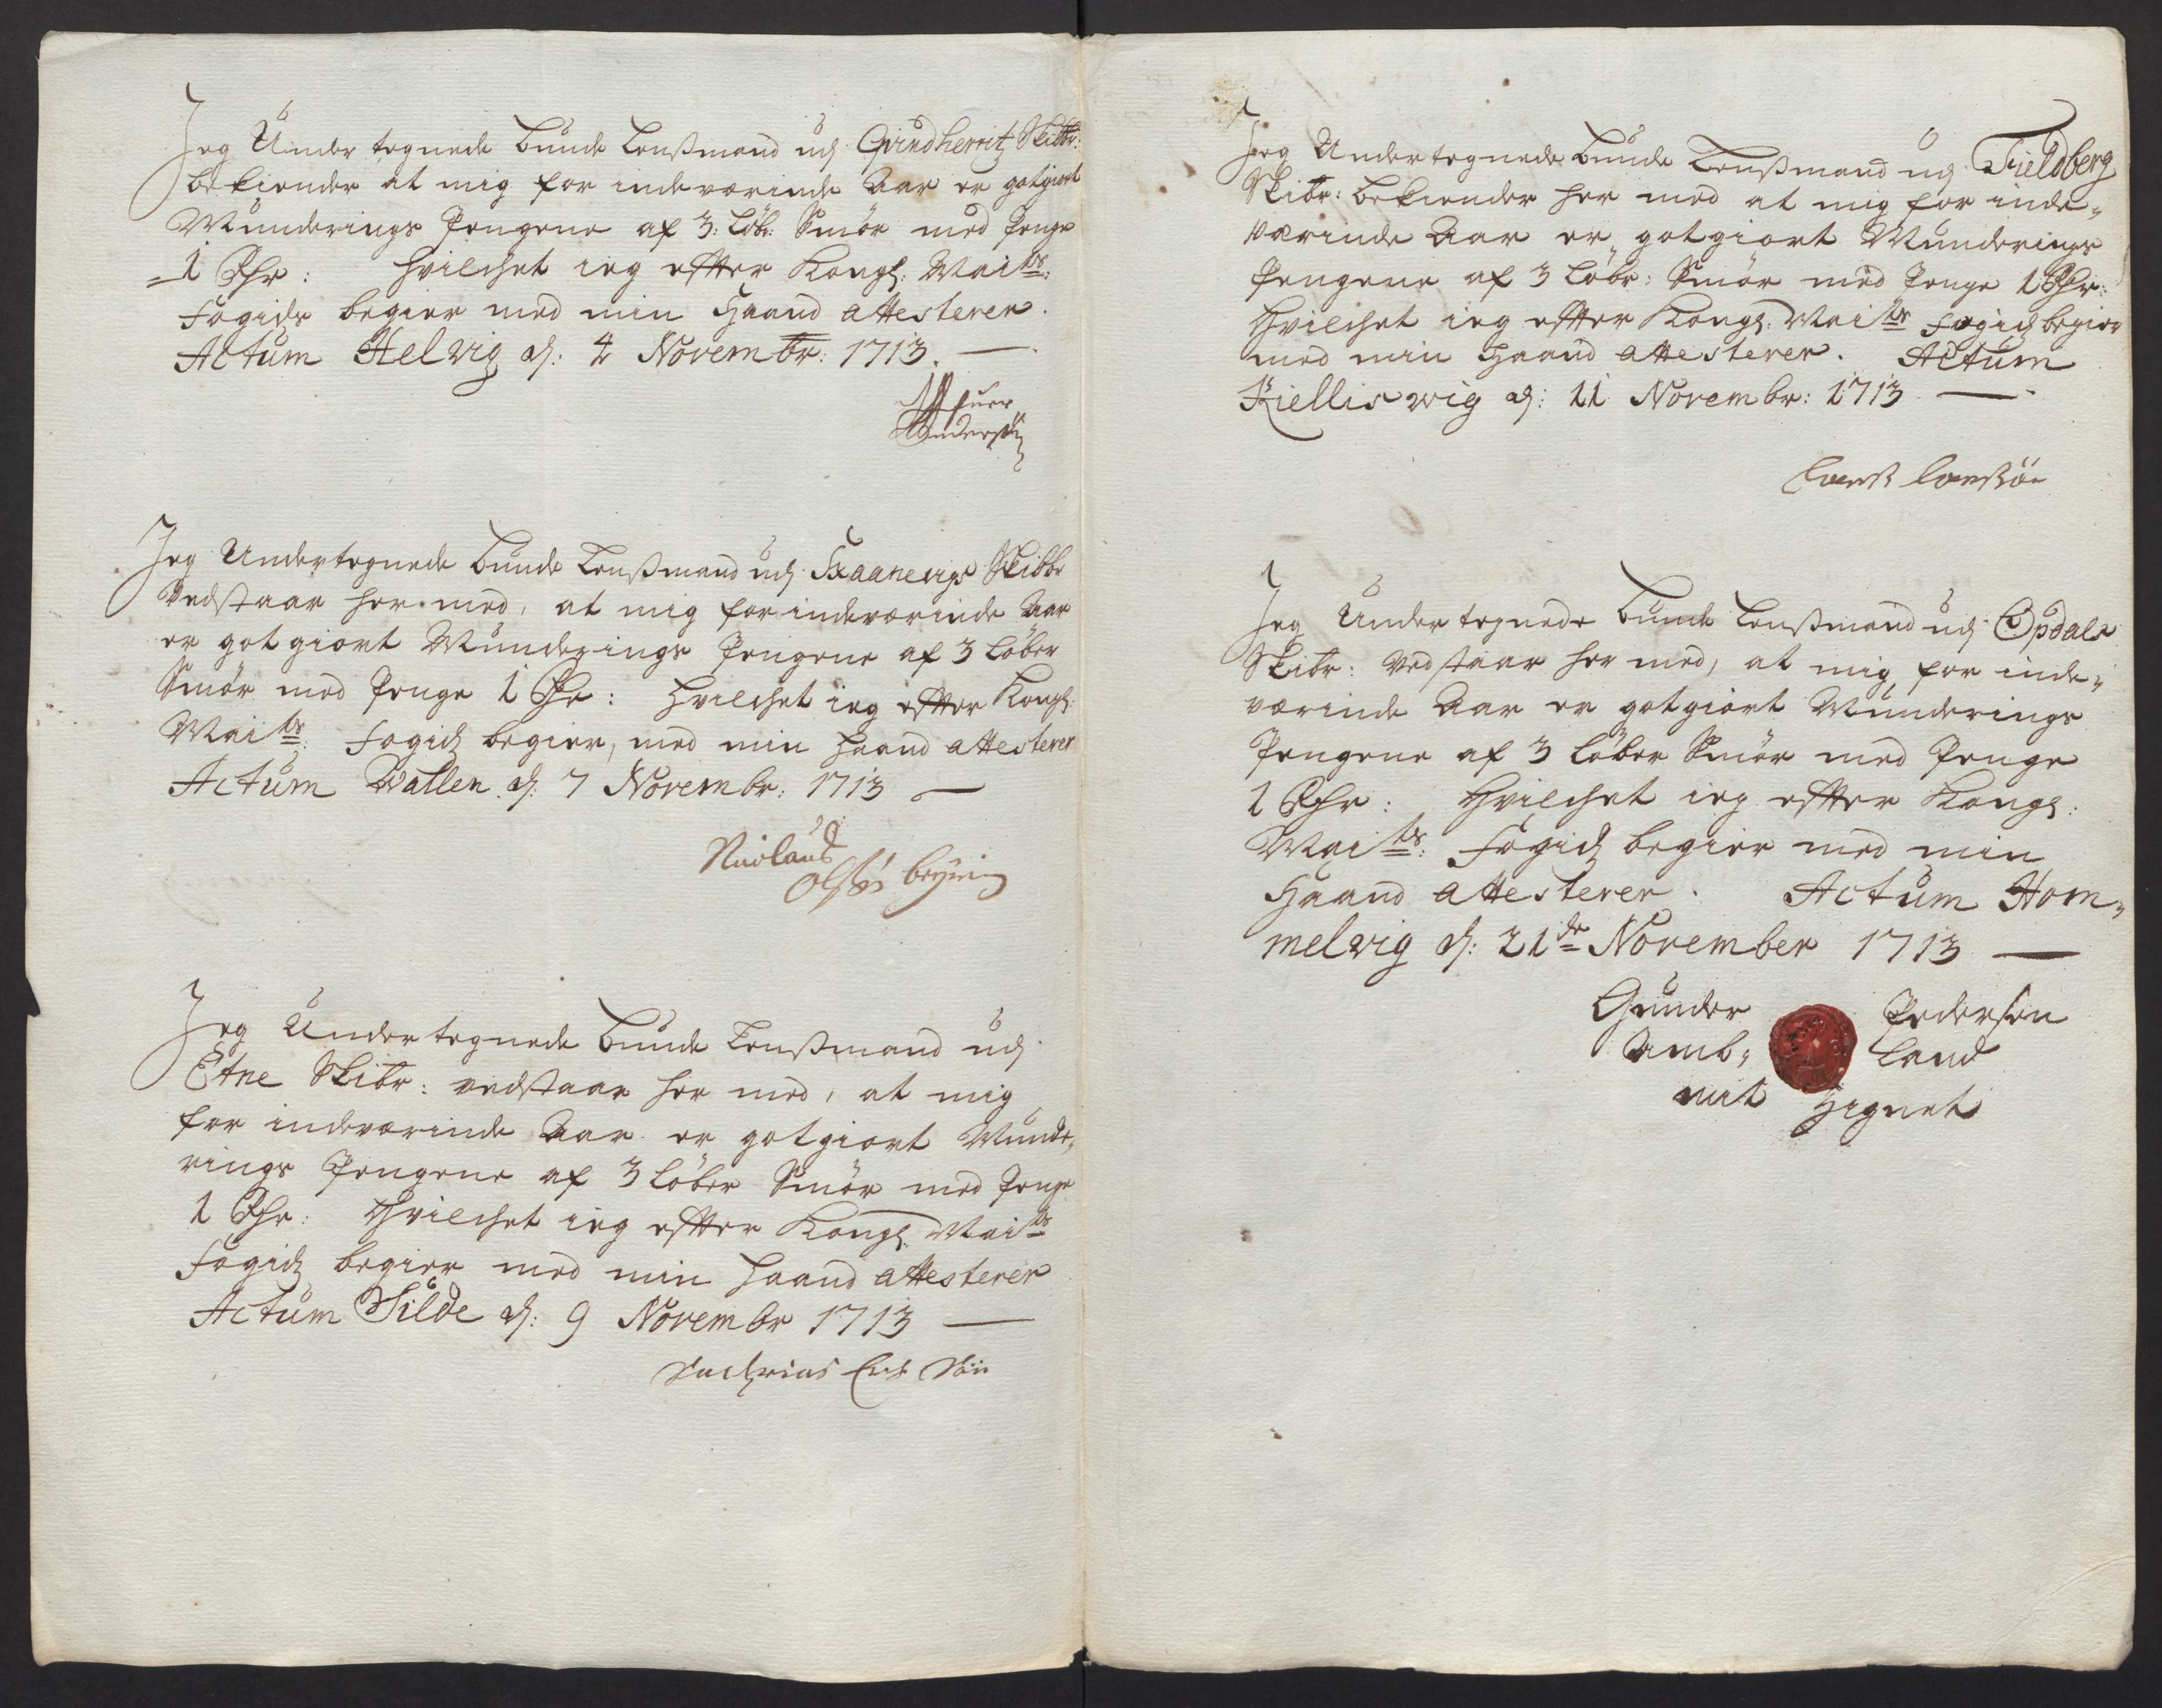 Jeg Under tegnede bunde Lensßmand udj Qvindherritz Skibbr:
bekiender at mig for indeværinde Aar er gotgiort
Munderings Pengene af 3: Løbr: Smør med Penge
1 Rdr: hvilchet ieg effter Kongl: Maits:
Fogids begier med min Haand attesterer.
Actum Helvig d: 4 Novembr: 1713.
Anderßøn
Jeg Undertegnede bunde Lensßmand udj Skaanevigs Skibbr
Vedstaar her med, at mig for indeværinde Aar
er gotgiort Munderings Pengene af 3 Løber
Smør med Penge 1 Rdr: Hvilchet ieg effter Kongl:
Maits: Fogidz begier, med min Haand attesterer
Actum Vallen d: 7 Novembr: 1713
Nicolaus
Olßøn
Jeg Undertegnede bunde Lensßmand udj
Etne Skibr: vedstaar her med, at mig
for indeværinde Aar er gotgiort Munde,,
rings Pengene af 3 Løber Smør med Penge
1 Rdr: Hvilchet ieg effter Kongl: Maits
Fogidz begier med min Haand attesterer
Actum Silde d: 9 Novembr 1713
Sachrias Søn
Jeg Undertegnede bunde Lensßmand udj Fieldberg
Skibr: bekiender her med at mig for inde,,
værinde Aar er gotgiort Munderings
Pengene af 3 Løbr: Smør med Penge 1 Rdr:
Hvilchet ieg effter Kongl: Maits Fogidz begier
med min Haand attesterer. Actum
Kiellisvig d: 11 Novembr: 1713
Jeg Undertegnede bunde Lensßmand udj Opdals
Skibr: Vedstaar her med, at mig for inde,,
værinde Aar er gotgiort Munderings
Pengene af 3 Løber Smør med Penge
1 Rdr: Hvilchet ieg effter Kongl:
Maits: Fogidz begier med min
Haand attesterer. Actum Hom,,
melvig d: 21de November 1713
Gunder Pedersen
Amb,, land
mit Zignet